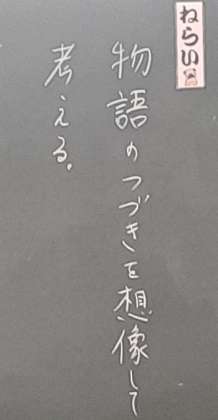 ねらい
物語のつづきを想像して
考える。